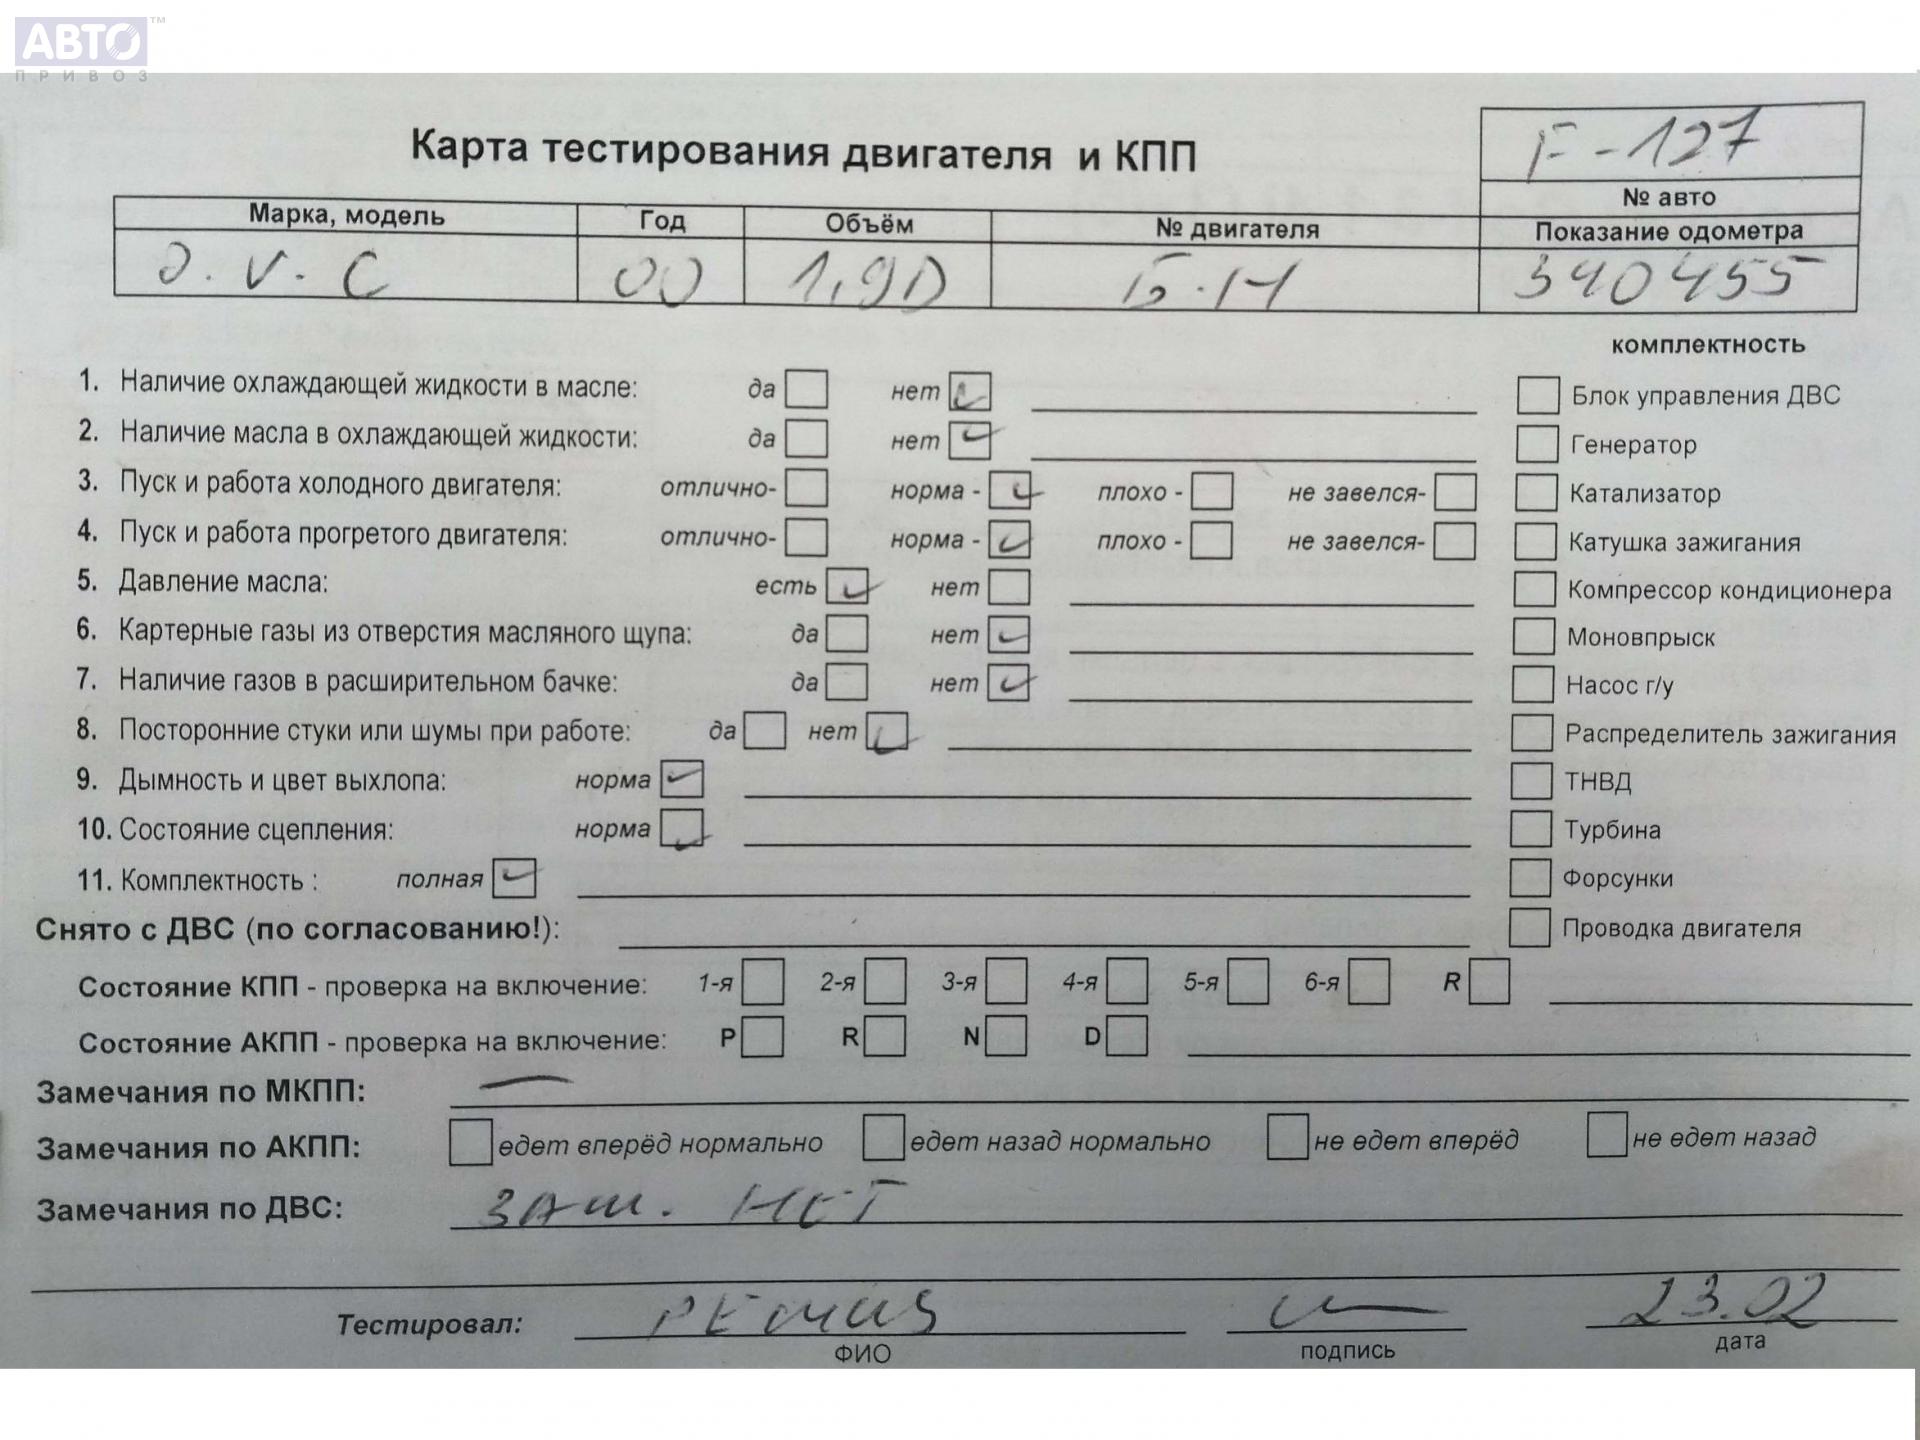 АВТО ™
ПРИВОЗ
F-127
Карта тестирования двигателя и КПП
№ авто
Марка, модель Год Объём № двигателя Показание одометра
О.V.C 00 1,9D Б.Н 340455
комплектность
1. Наличие охлаждающей жидкости в масле: да нет Блок управления ДВС
2. Наличие масла в охлаждающей жидкости: да нет Генератор
3. Пуск и работа холодного двигателя: отлично- норма - плохо - не завелся- Катализатор
4. Пуск и работа прогретого двигателя: отлично- норма - плохо - не завелся- Катушка зажигания
5. Давление масла: есть нет Компрессор кондиционера
6. Картерные газы из отверстия масляного щупа: да нет Моновпрыск
7. Наличие газов в расширительном бачке: да нет Насос г/у
8. Посторонние стуки или шумы при работе: да нет Распределитель зажигания
9. Дымность и цвет выхлопа: норма ТНВД
10. Состояние сцепления: норма Турбина
11. Комплектность : полная Форсунки
Снято с ДВС (по согласованию!): Проводка двигателя
Состояние КПП - проверка на включение: 1-я 2-я 3-я 4-я 5-я 6-я R
Состояние АКПП - проверка на включение: P R N D
Замечания по МКПП: —
Замечания по АКПП: едет вперёд нормально едет назад нормально не едет вперёд не едет назад
Замечания по ДВС: Зам. НЕТ
Тестировал: 23.02
ФИО подпись дата